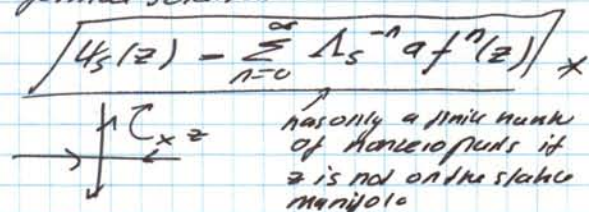 ψ_s(z) - Σ_{n=0}^{∞} Λ_s^{-n} a f^n(z) *
x z
has only a finite number
of nonzero
z is not on the stable
manifold